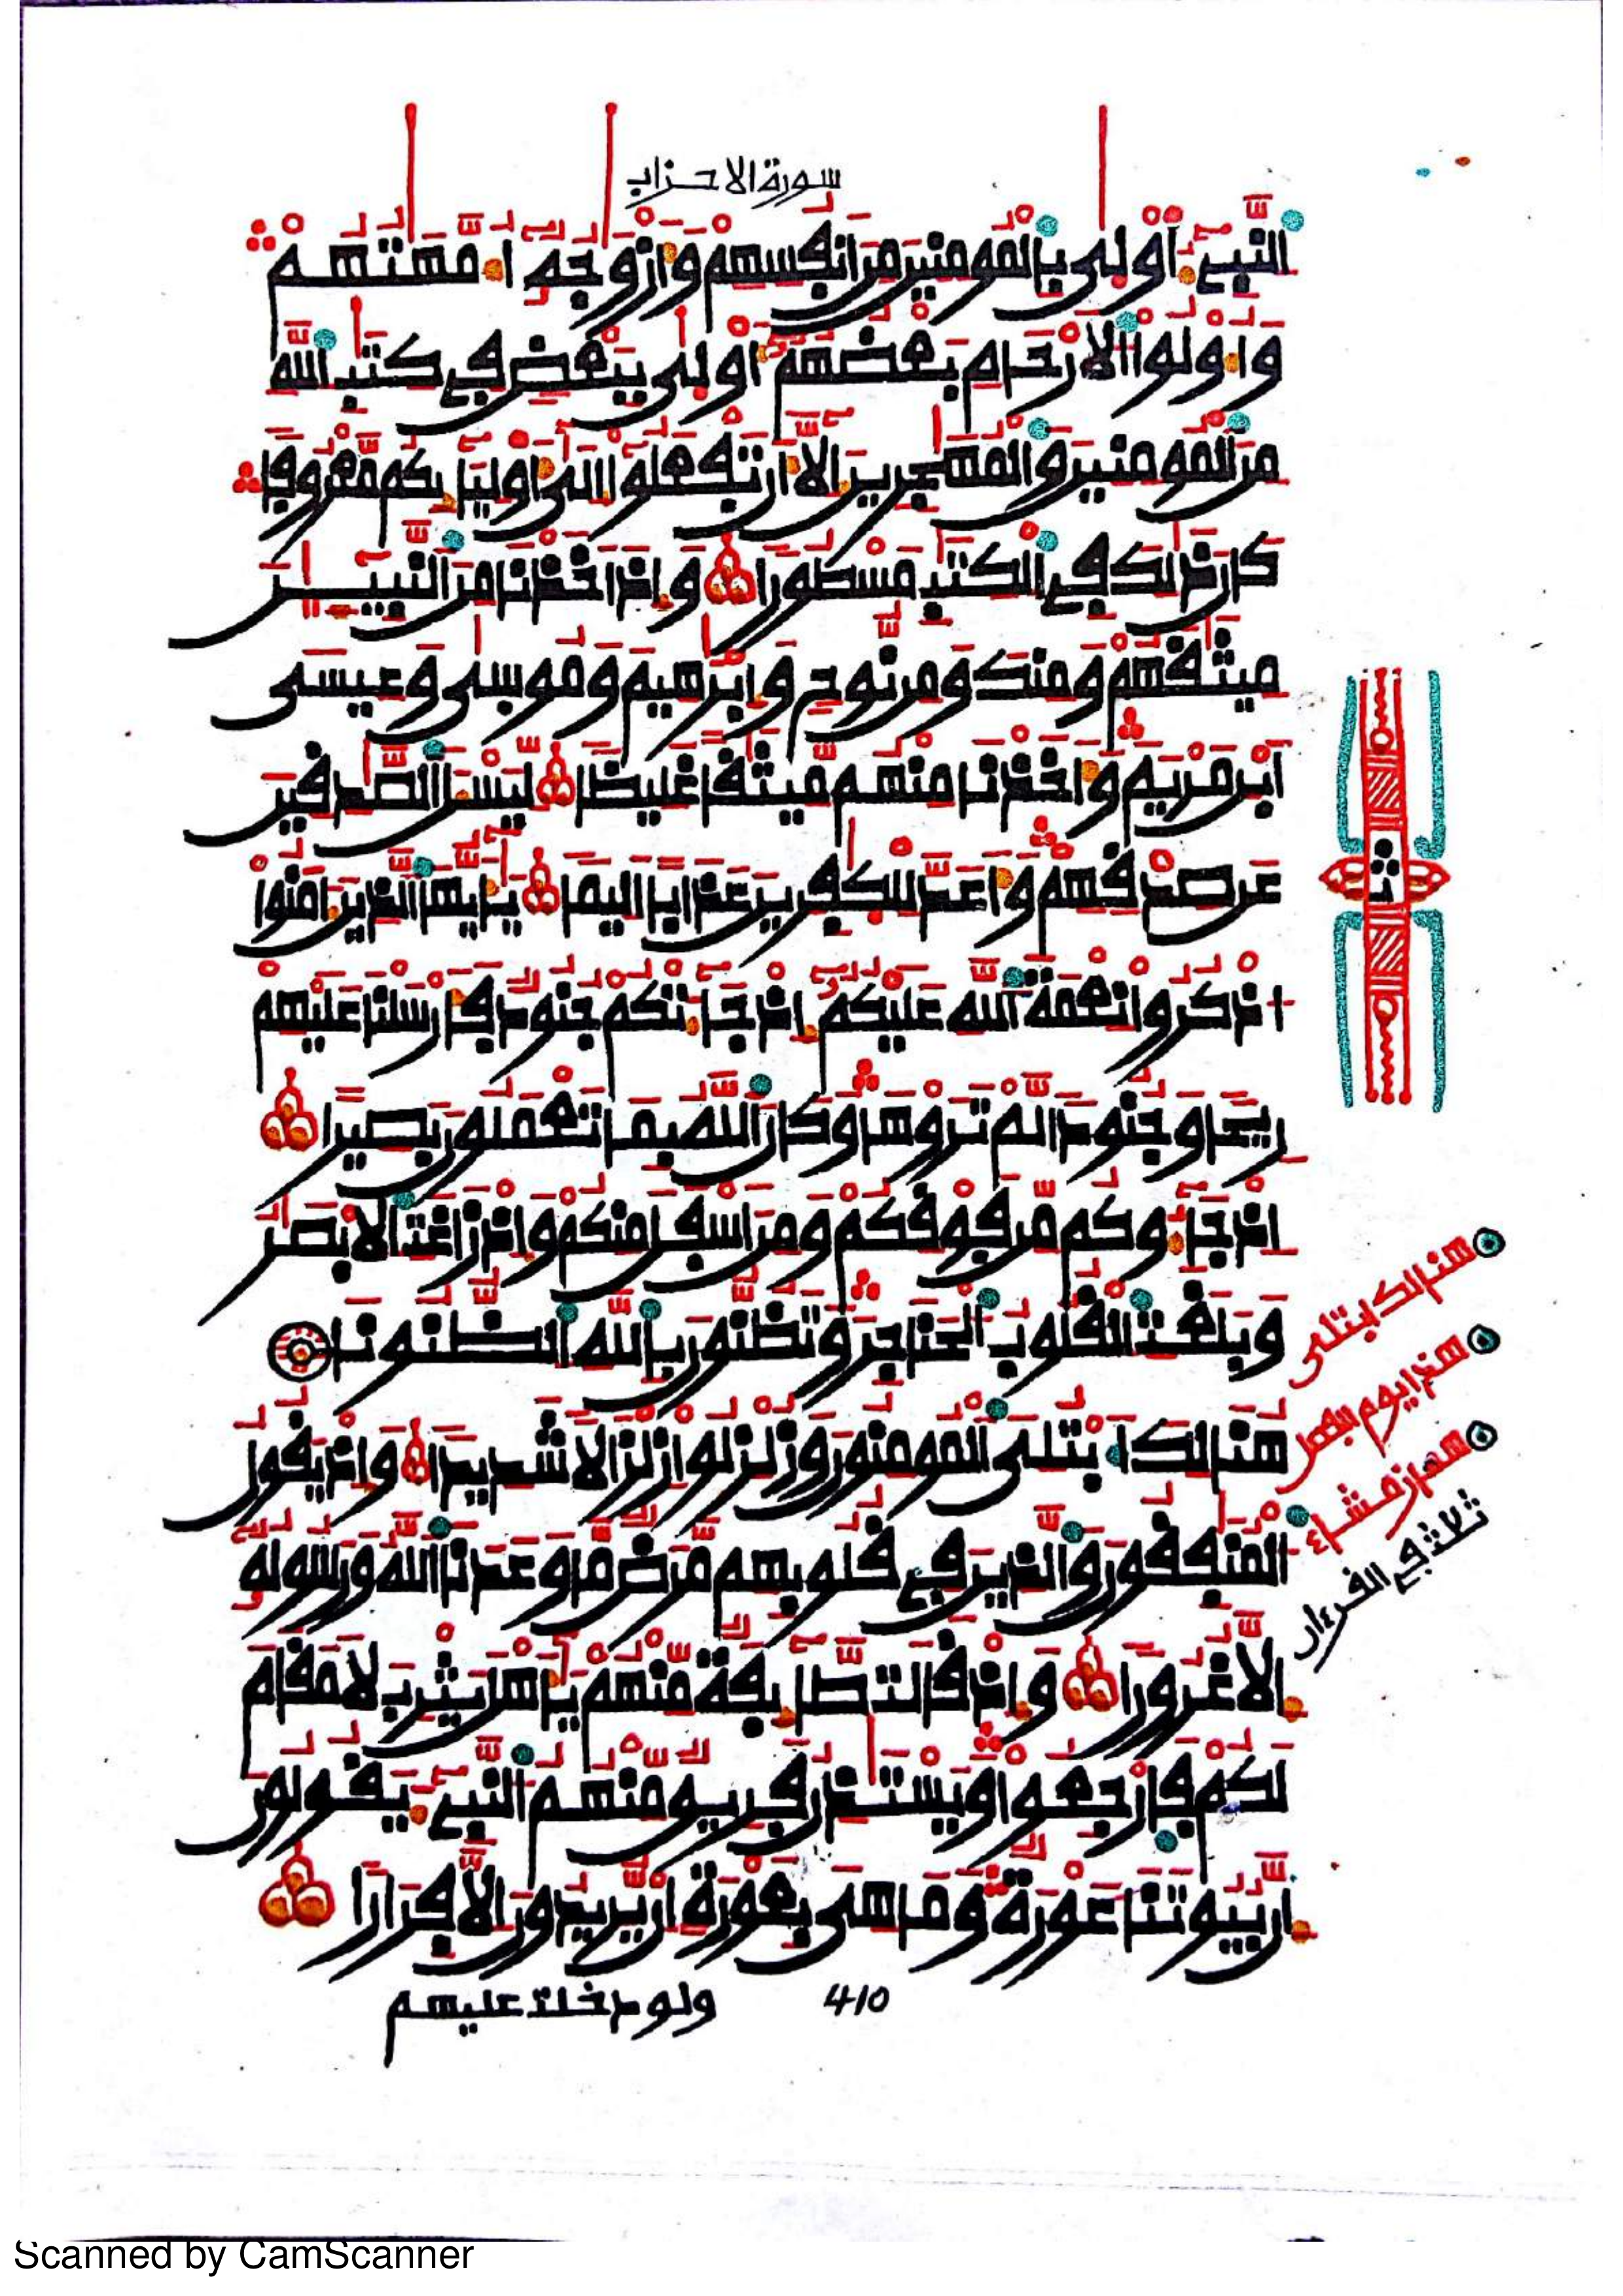 سورة الاحزاب
النبيء اولى بالمومنين من انفسهم وازوجه امهتهم
واولوا الارحام بعضهم اولى ببعض في كتب الله
من المومنين والمهجرين الا ان تفعلوا الى اوليايكم معروفا
كان ذلك في الكتب مسطورا واذ اخذنا من النبيــن
ميثقهم ومنك ومن نوح وابرهيم وموسى وعيسى
ابن مريم واخذنا منهم ميثقا غليظا ليسل الصدقين
عن صدقهم واعد للكفرين عذابا اليما يايها الذين امنوا
اذكروا نعمة الله عليكم اذ جاتكم جنود فارسلنا عليهم
ريحا وجنودا لم تروها وكان الله بما تعملون بصيرا
اذ جاوكم من فوقكم ومن اسفل منكم واذ زاغت الابصر
وبلغت القلوب الحناجر وتظنون بالله الظنونا
هنالك ابتلى المومنون وزلزلوا زلزالا شديدا واذ يقول
المنفقون والذين في قلوبهم مرض ما وعدنا الله ورسوله
الا غرورا واذ قالت طايفة منهم ياهل يثرب لا مقام
لكم فارجعوا ويستذن فريق منهم النبيء يقولون
ان بيوتنا عورة وما هي بعورة ان يريدون الا فرارا
ولو دخلت عليهم
410
هنالك ابتلى
هذا يوم
ثلاث في القرءان
Scanned by CamScanner